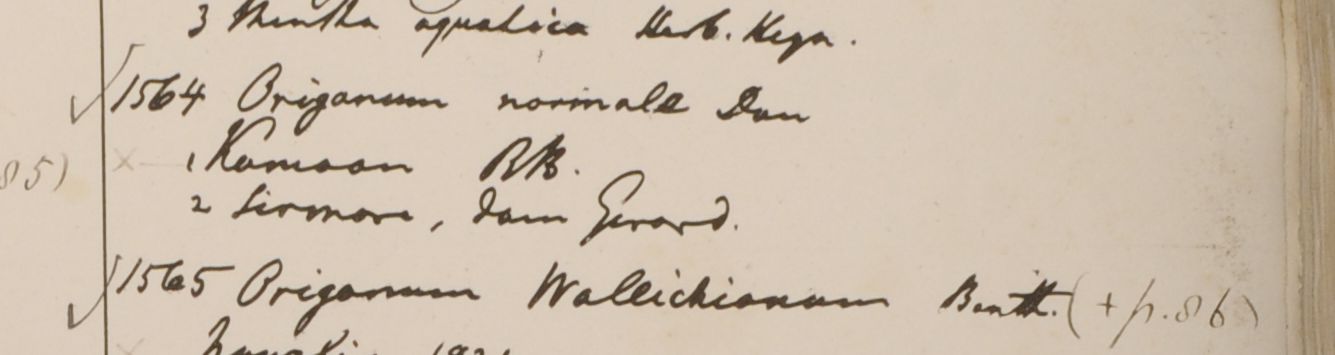 3 Mentha aquatica Herb. Heyn.
1564 Origanum normale Don
1 Kamaon RB.
85)
2 Sirmore, Dam Gerard.
1565 Origanum Wallichianum Benth. (+ p. 86)